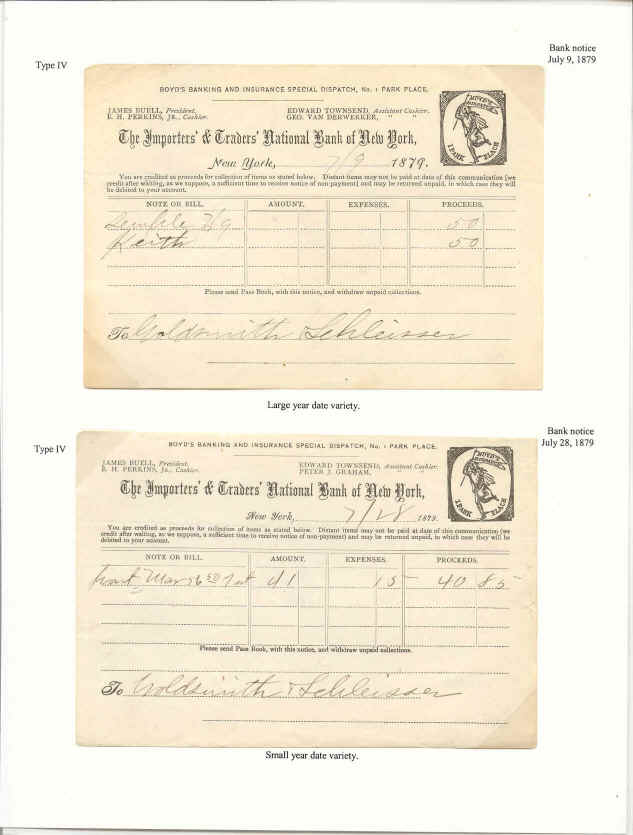 Bank notice
Type IV
July 9, 1879
BOYD'S BANKING AND INSURANCE SPECIAL DISPATCH, No. 1 PARK PLACE.
JAMES BUELL, President.
EDWARD TOWNSEND, Assistant Cashier.
E. H. PERKINS, JR., Cashier.
GEO. VAN DERWERKER, " "
The Importers' & Traders' National Bank of New York,
New York, 7/9 1879.
You are credited as proceeds for collection of items as stated below. Distant items may not be paid at date of this communication (we
credit after waiting, as we suppose, a sufficient time to receive notice of non-payment) and may be returned unpaid, in which case they will
be debited to your account.
NOTE OR BILL. AMOUNT. EXPENSES. PROCEEDS.
7/9 50
Keith 50
Please send Pass Book, with this notice, and withdraw unpaid collections.
To Goldsmith Schleisser
Large year date variety.
Bank notice
Type IV
July 28, 1879
BOYD'S BANKING AND INSURANCE SPECIAL DISPATCH, No. 1 PARK PLACE.
JAMES BUELL, President.
EDWARD TOWNSEND, Assistant Cashier.
E. H. PERKINS, JR., Cashier.
PETER J. GRAHAM, "
The Importers' & Traders' National Bank of New York,
New York, 7/28 1879.
You are credited as proceeds for collection of items as stated below. Distant items may not be paid at date of this communication (we
credit after waiting, as we suppose, a sufficient time to receive notice of non-payment) and may be returned unpaid, in which case they will be
debited to your account.
NOTE OR BILL. AMOUNT. EXPENSES. PROCEEDS.
41 15 40 85
Please send Pass Book, with this notice, and withdraw unpaid collections.
To Goldsmith & Schleisser
Small year date variety.